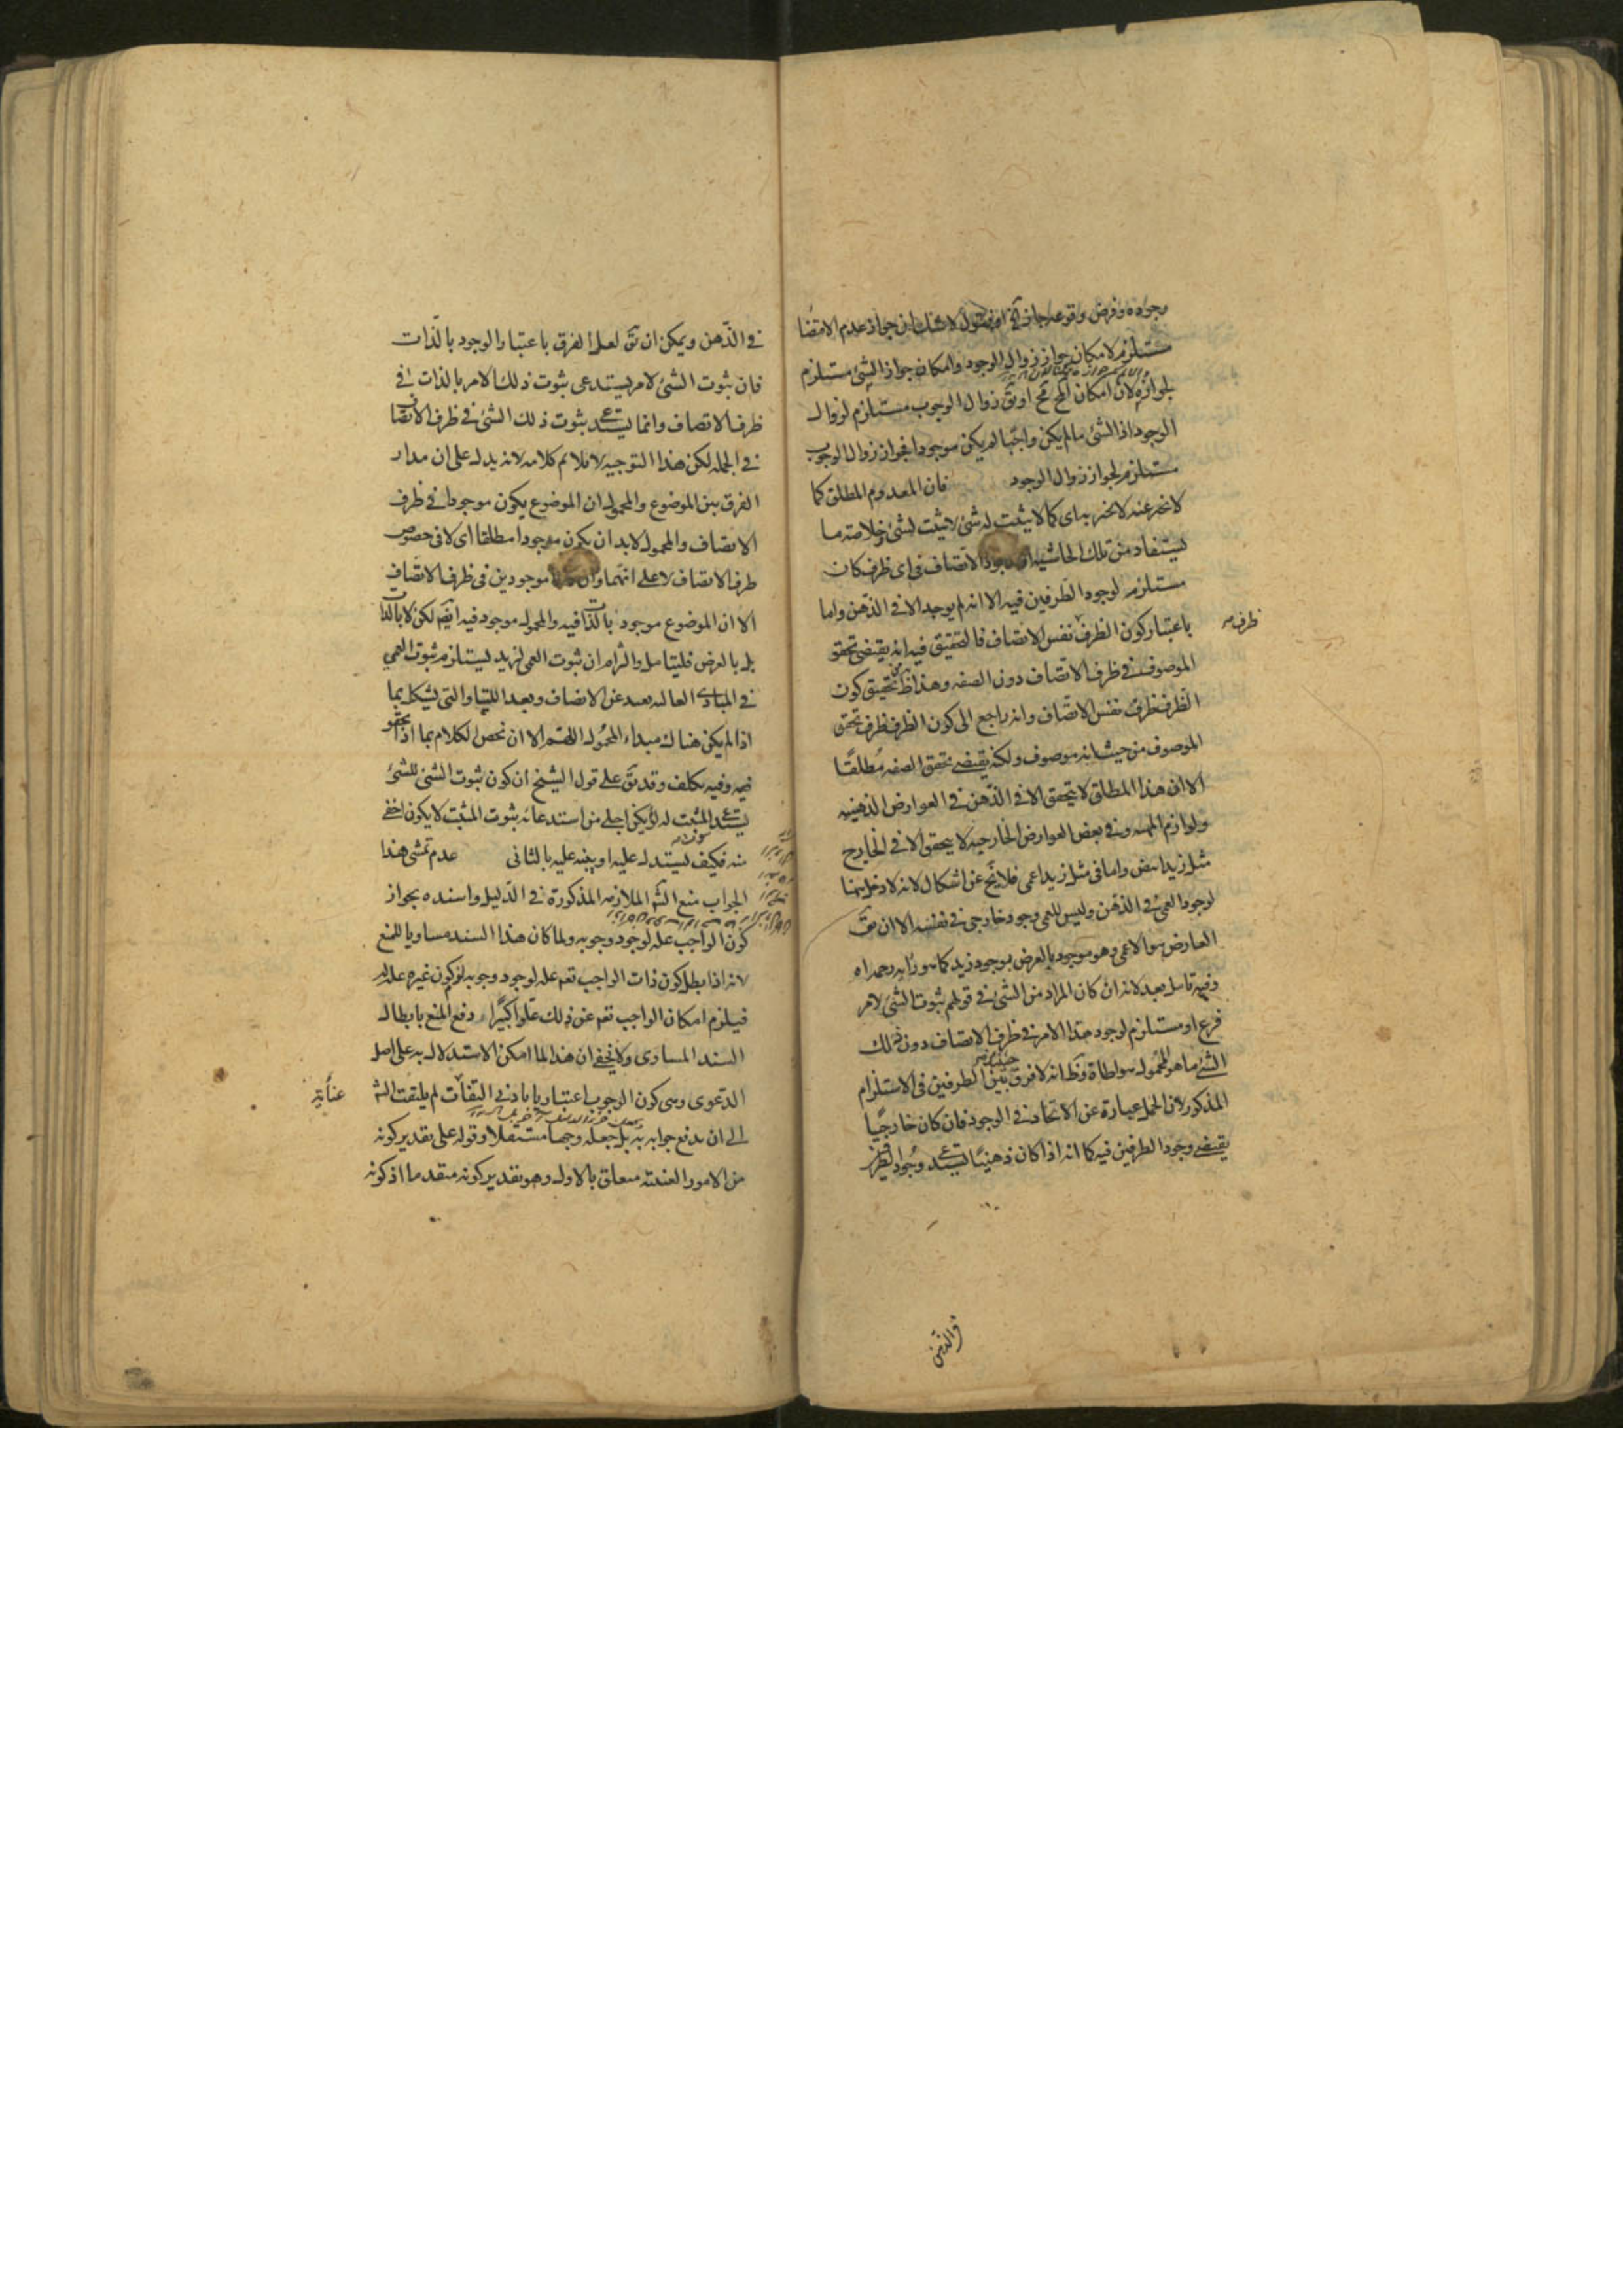 وجوده وفرض وقوعه جاز
لا شك ان جواز عدم الاتصا
مستلزم لامكان جواز زوال الوجود وامكان جواز الشئ مستلزم
لجوازه لان امكان المح مح او نق زوال الوجوب مستلزم لزوال
الوجود اذ الشئ ما لم يكن واجبا لم يكن موجودا فجواز زوال الوجوب
مستلزم لجواز زوال الوجود فان المعدوم المطلق كما
لا يخبر عنه لا يخبر به اى كما لا يثبت له شئ لا يثبت لشئ وخلاصة ما
يستفاد من تلك الحاشية ان وجود الاتصاف فى اى ظرف كان
مستلزم لوجود الطرفين فيه الا انه لم يوجد الا فى الذهن واما
باعتبار كون الظرف نفس الاتصاف فالتحقيق فيه انه يقتضى تحقق
ظرف
الموصوف فى ظرف الاتصاف دون الصفه وهذا تحقيق كون
الظرف ظرف نفس الاتصاف وانه راجع الى كون الظرف ظرف تحقق
الموصوف من حيث انه موصوف ولكنه يقتضى تحقق الصفه مطلقا
الا ان هذا المطلق لا يتحقق الا فى الذهن فى العوارض الذهنيه
ولوازم المهيه وفى بعض العوارض الخارجيه لا يتحقق الا فى الخارج
مثل زيد ابيض واما فى مثل زيد اعمى فلا يخ عن اشكال لانه لا دخل هنا
لوجود العمى فى الذهن وليس للعمى وجود خارجى فى نفسه الا ان يق
العارض هو الاعمى وهو موجود بالعرض بوجود زيد كما هو رايه رحمه الله
وفيه تامل بعد لانه ان كان المراد من الشئ فى قولهم ثبوت الشئ لامر
فرع او مستلزم لوجود هذا الامر فى ظرف الاتصاف دون ذلك
الشئ ما هو المحمول مواطاة فظ انه لا فرق بين الطرفين فى الاستلزام
المذكور لان الحمل عبارة عن الاتحاد فى الوجود فان كان خارجيا
يقتضى وجود الطرفين فيه كما انه اذا كان ذهنيا يستدعى وجود الطرفين
والذهن
فى الذهن ويمكن ان يق لعل الفرق باعتبار الوجود بالذات
فان ثبوت الشئ لامر يستدعى ثبوت ذلك الامر بالذات فى
ظرف الاتصاف وانما يستدعى ثبوت ذلك الشئ فى ظرف الاتصاف
فى الجمله لكن هذا التوجيه لا يلائم كلامه لانه يدل على ان مدار
الفرق بين الموضوع والمحمول ان الموضوع يكون موجودا فى ظرف
الاتصاف والمحمول لا بد ان يكون موجودا مطلقا اى لا فى خصوص
ظرف الاتصاف لا على انهما موجودين فى ظرف الاتصاف
الا ان الموضوع موجود بالذات فيه والمحمول موجود فيه ايضا لكن لا بالذات
بل بالعرض فليتامل والتزام ان ثبوت العمى لزيد يستلزم ثبوت العمى
فى المبادى العاليه بعيد عن الانصاف وبعد اللتيا والتى يشكل بما
اذا لم يكن هناك مبداء المحمول اللهم الا ان نخص الكلام بما اذا تحقق
فيه وفيه تكلف وقد يق على قول الشيخ ان كون ثبوت الشئ للشئ
يستدعى المثبت له لو لم يكن اجلى من استدعائه ثبوت المثبت لا يكون اخفى
منه فكيف يستدل عليه او ينبه عليه بالثانى عدم تمشى هذا
الجواب منع الش الملازمه المذكورة فى الدليل واسنده بجواز
كون الواجب عله لوجود وجوبه ولما كان هذا السند مساويا للمنع
لانه اذا بطل كون ذات الواجب تعم عله لوجود وجوبه لزم كون غيره عله له
فيلزم امكان الواجب تعم عن ذلك علوا كبيرا دفع المنع بابطال
السند المساوى ولا يخفى ان هذا لما امكن الاستدلال به على اصل
الدعوى وهى كون الوجوب اعتباريا بادنى التفات لم يلتفت الش
عناية
الى ان يدفع جوابه به بل جعله وجها مستقلا وقوله على تقدير كونه
من الامور العينيه متعلق بالاول وهو تقدير كونه متقدما اذ كونه